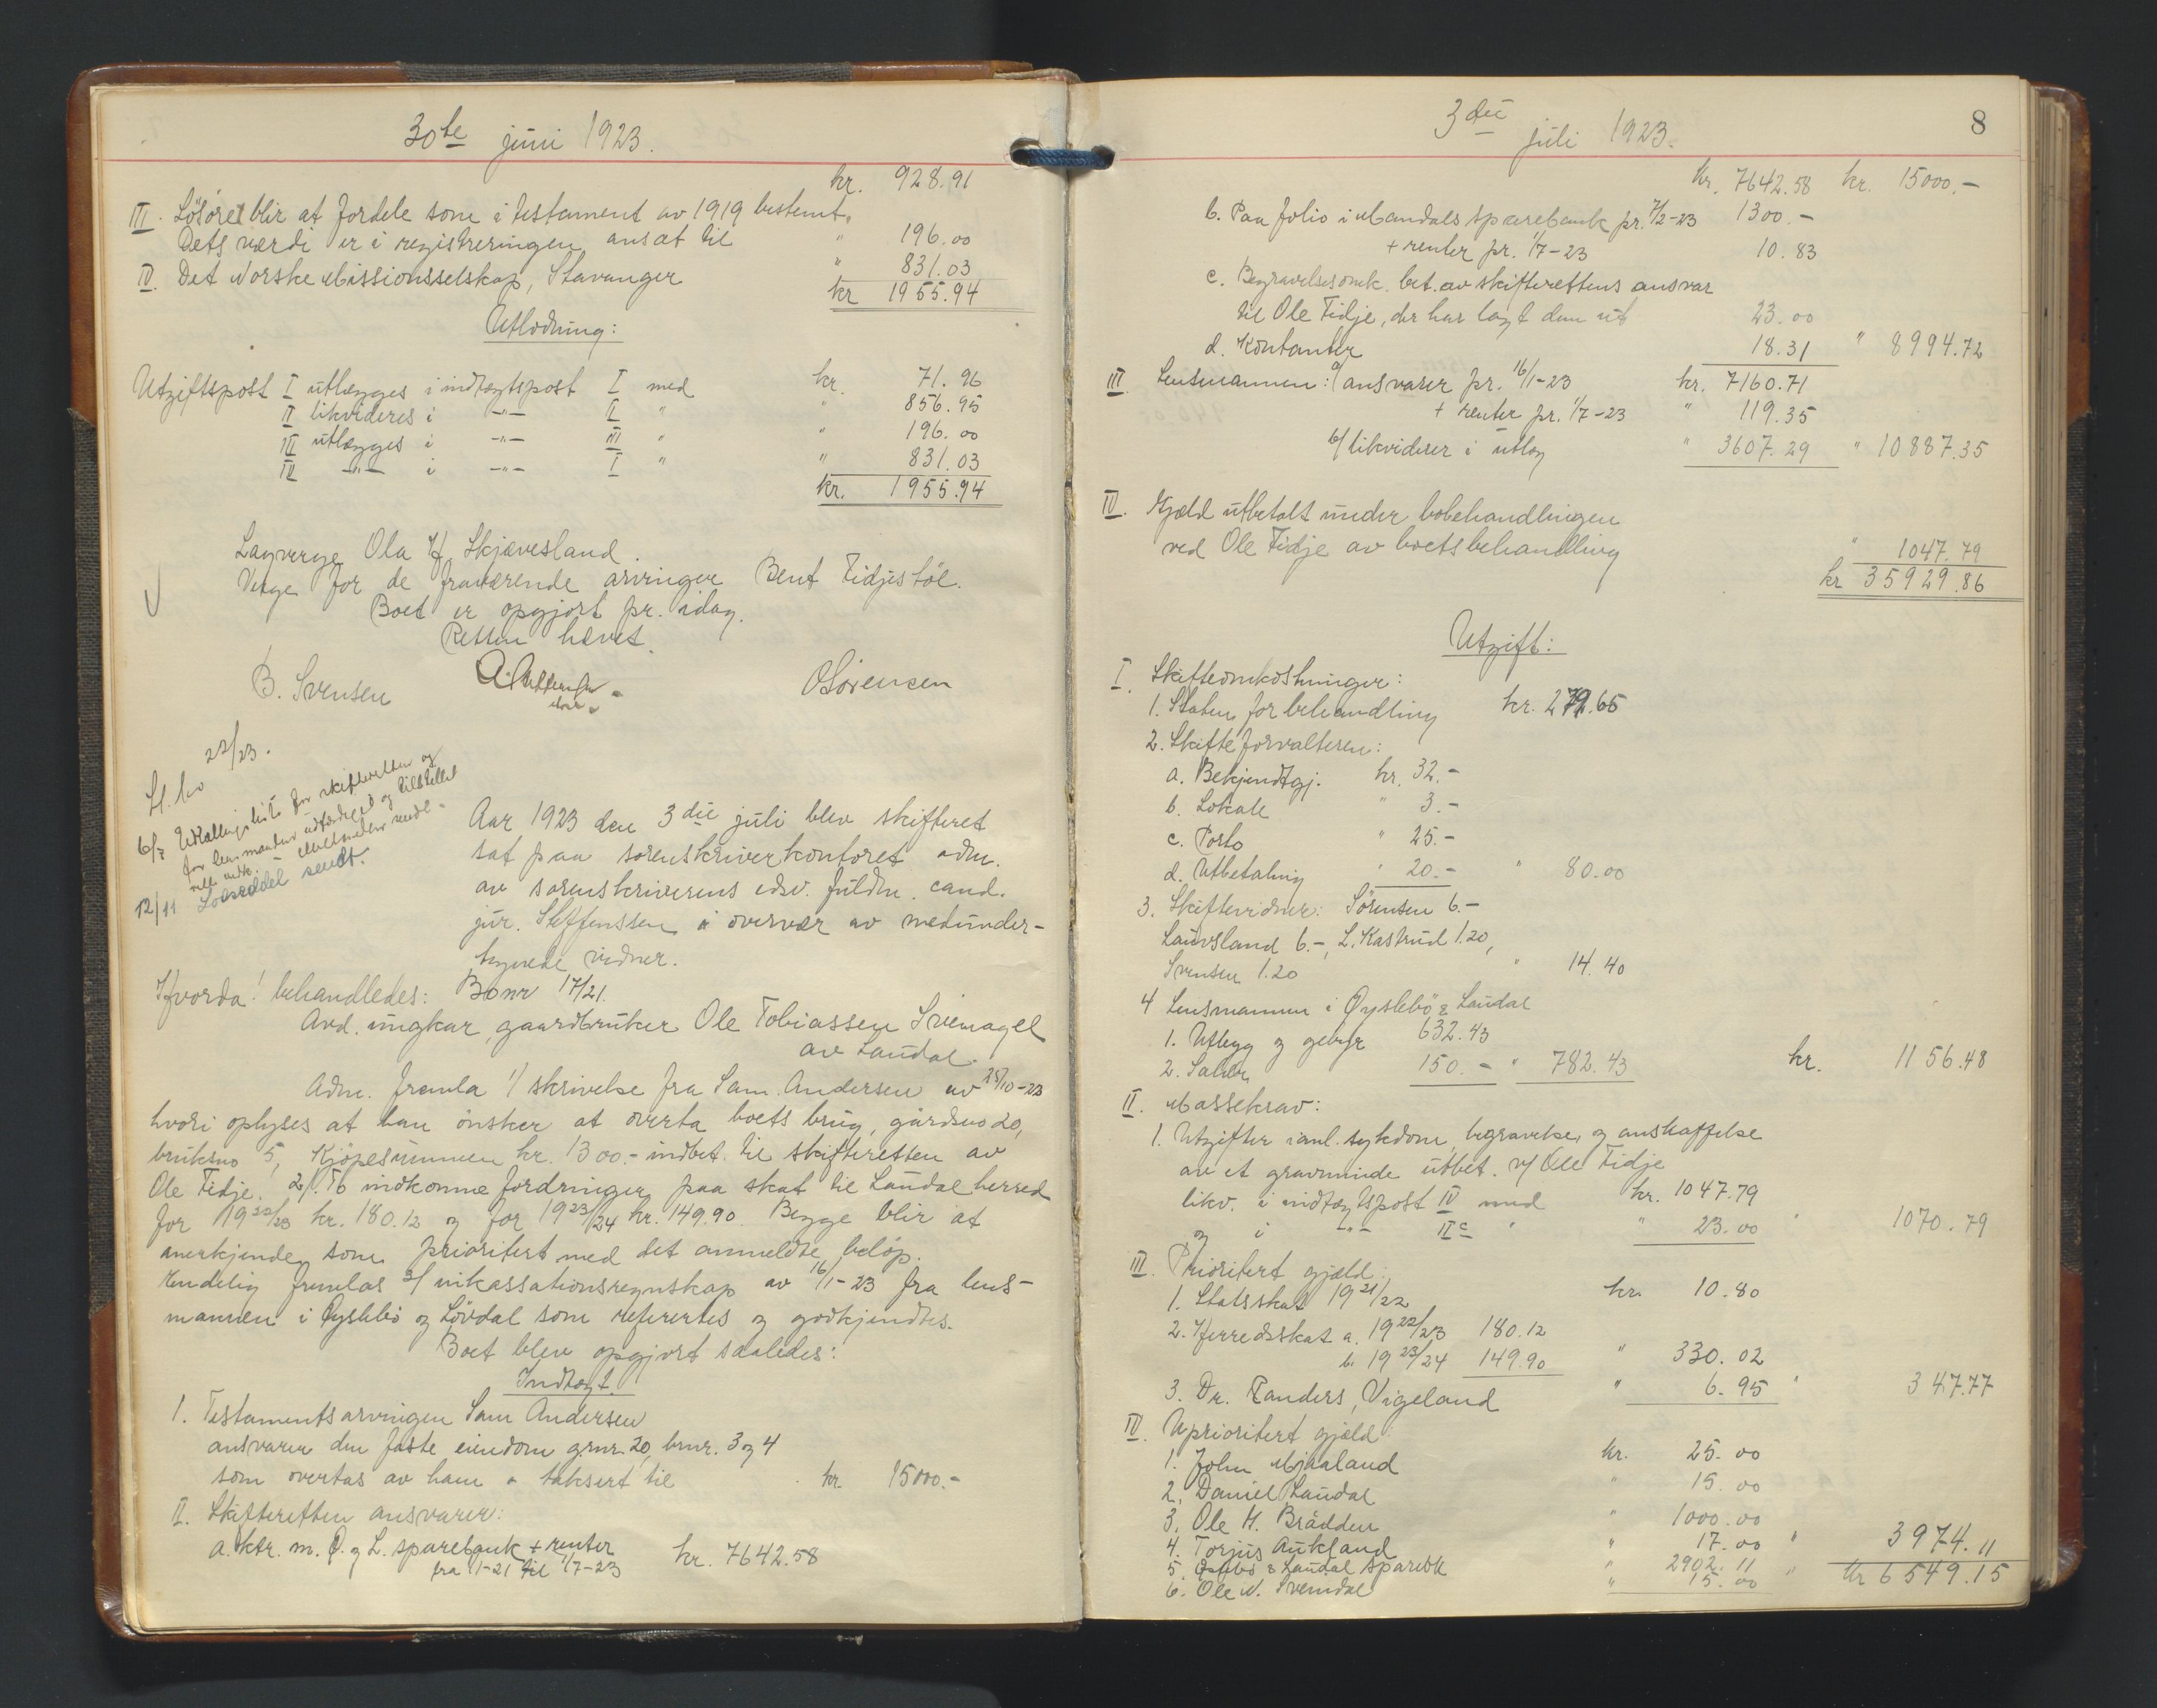 30te juni 1923.
kr. 928.91
III. Lösöret blir at fordele som i testament av 1919 bestemt.
Dets værdi er i registreringen ansat til " 196.00
IV. Det Norske Missionsselskap, Stavanger " 831.03
kr 1955.94
Utlodning:
Utgiftspost I utlægges i indtægtspost I med kr. 71.96
II likvideres i -"- II " " 856.95
III utlægges i -"- III " " 196.00
IV -"- i -"- I " " 831.03
kr. 1955.94
Lagverge Ola Hf Skjævesland.
Verge for de fraværende arvinger Bent Tidjestöl.
Boet er opgjort pr. idag.
Retten hævet.
B. Svensen
OSörensen
22/23.
6/7 Utkallingsliste for skifteretten og
for lensmanden utfærdiget og tilstillet
12/11 Loseddel sendt.
Aar 1923 den 3die juli blev skifteret
sat paa sorenskriverkontoret adm.
av sorenskriverens edsv. fuldm. cand.
jur. Steffenssen i overvær av medunder-
tegnede vidner.
Hvorda! behandledes: Bonr 17/21.
Avd. ungkar, gaardbruker Ole Tobiassen Svenagel
av Laudal.
Adm. fremla 1/ skrivelse fra Sam. Andersen av 25/10-23
hvori oplyses at han önsker at overta boets brug, gårdsno 20,
bruksno 5, Kjöpesummen kr. 1300.- indbet. til skifteretten av
Ole Tidje. 2/. To indkomne fordringer paa skat til Laudal herred
for 1922/23 kr. 180.12 og for 1923/24 kr. 149.90. Begge blir at
anerkjende som prioritert med det anmeldte belöp.
Endelig fremlas 3/ inkassationsregnskap av 16/1-23 fra lens-
mannen i Öyslebö og Lövdal som referertes og godkjendtes.
Boet blev opgjort saaledes:
Indtægt.
1. Testamentsarvingen Sam Andersen
ansvarer den faste eiendom grnr. 20, brnr. 3 og 4
som overtas av ham - taksert til kr. 15000.-
II. Skifteretten ansvarer:
a. ktr. m. Ö. og L. sparebank + renter
fra 1/1-21 til 1/7-23 kr. 7642.58
3die juli 1923.
8
kr. 7642.58 kr. 15000.-
b. Paa folio i Mandals sparebank pr. 7/2-23 1300.-
+ renter pr. 1/7-23 10.83
c. Begravelsesomk. bet. av skifterettens ansvar
til Ole Tidje, der har lagt dem ut 23.00
d. Kontanter 18.31 " 8994.72
III Lensmannen: a/ ansvarer pr. 16/1-23 kr. 7160.71
+ renter pr. 1/7-23 " 119.35
b/ likviderer i utlæg " 3607.29 " 10887.35
IV. Gjæld utbetalt under bobehandlingen
ved Ole Tidje av boets behandling " 1047.79
kr 35929.86
Utgift:
I. Skifteomkostninger:
1. Staten for behandling kr. 279.65
2. Skifteforvalteren:
a. Bekjendtgj. kr. 32.-
b. Lokale " 3.-
c. Porto " 25.-
d. Utbetaling " 20.- " 80.00
3. Skiftevidner: Sörensen 6.-
Lauvsland 6.-, L. Kastrud 1.20,
Svensen 1.20 " 14.40
4 Lensmannen i Öyslebö & Laudal
1. Utlegg og gebyr 632.43
2. Salær 150.- " 782.43 kr. 1156.48
II. Massekrav:
1. Utgifter i anl. sykdom, begravelse, og anskaffelse
av et gravminde utbet. v/ Ole Tidje
likv. i indtægtspost IV med kr. 1047.79
og i -"- IIc " " 23.00 " 1070.79
III. Prioritert gjæld:
1. Statsskat 1921/22 kr. 10.80
2. Herredsskat a. 1922/23 180.12
b. 1923/24 149.90 " 330.02
3. Dr. Randers, Vigeland " 6.95 " 347.77
IV. Uprioritert gjæld:
1. John Mjaaland kr. 25.00
2. Daniel Laudal " 15.00
3. Ole H. Brådden " 1000.00
4. Torjus Aukland " 17.00 " 3974.11
5. Öysleb & Laudal sparebk " 2902.11 " kr 6549.15
6. Ole N. Svendal " 15.00